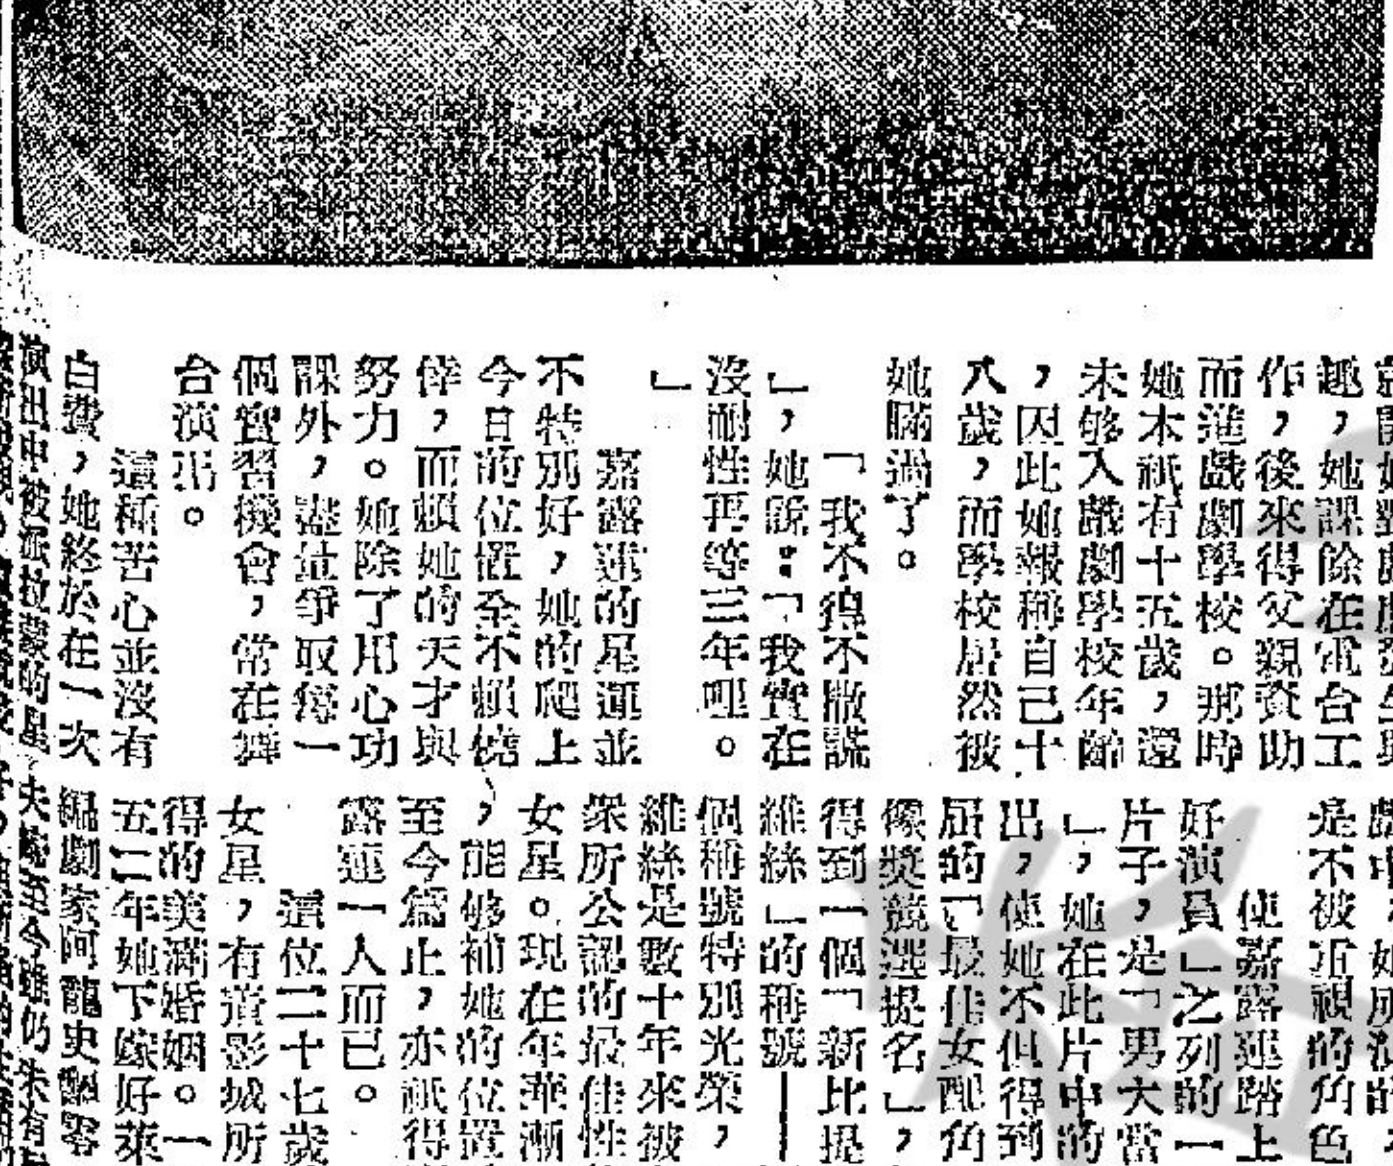 趣，她課除在電台工
作，後來得父親資助
而進戲劇學校。那時
她本祇有十五歲，還
未够入戲劇學校年齡
，因此她報稱自己十
八歲，而學校居然被
她瞞過了。
「我不得不撒謊
」，她說：「我實在
沒耐性再等三年哩。
」
嘉露蓮的星運並
不特別好，她的爬上
今日的位置全不賴僥
倖，而賴她的天才與
努力。她除了用心功
課外，盡量爭取每一
個實習機會，常在舞
台演出。
這種苦心並沒有
白費，她終於在一次
演出中被派拉蒙的星
是不被重視的角色
使嘉露蓮踏上
好演員」之列的一
片子，是「男大當
」，她在此片中的
出，使她不但得到
屆的「最佳女配角
像獎競選提名」，
得到一個「新比提
維絲」的稱號——
個稱號特別光榮，
維絲是數十年來被
衆所公認的最佳性
女星。現在年華漸
，能够補她的位置
至今為止，亦祇得
露蓮一人而已。
這位二十七歲
女星，有道影城所
得的美滿婚姻。一
五二年她下嫁好萊
編劇家阿龍史
夫婦至今雖仍未有